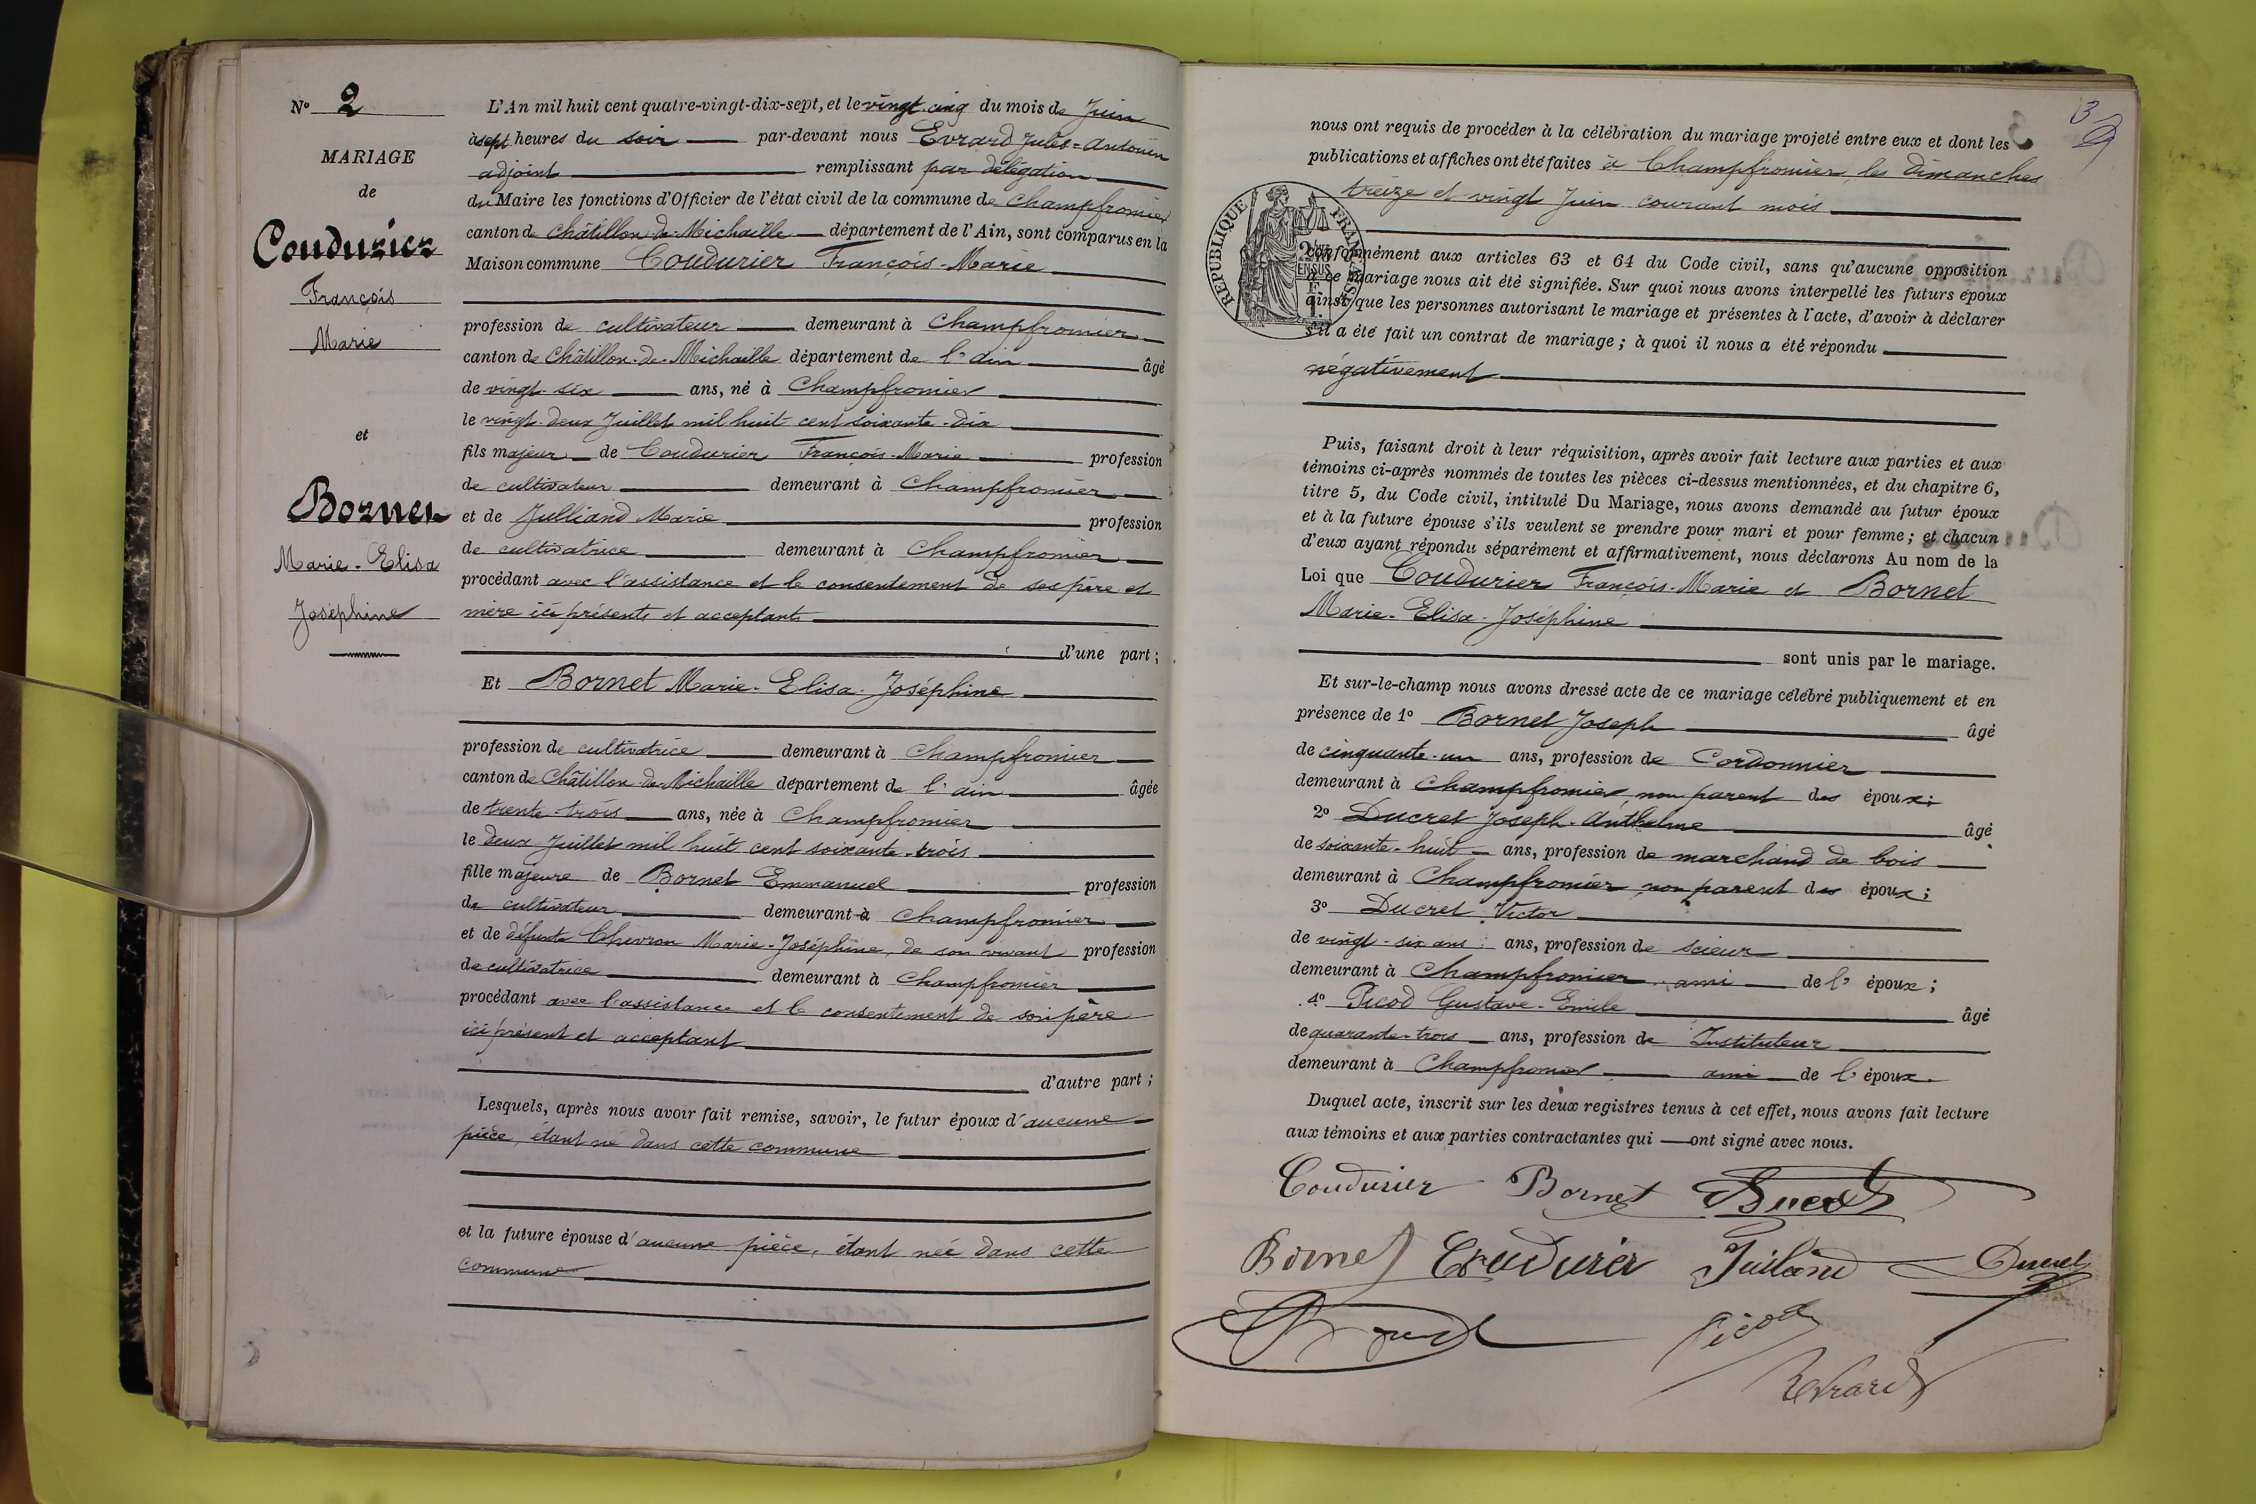 N° 2
MARIAGE
de
Coudurier
François
Marie
et
Bornet
Marie-Elisa
Joséphine
L'An mil huit cent quatre-vingt-dix-sept, et le vingt-cinq du mois de Juin
à sept heures du soir par-devant nous Evrard Jules-Antonin
adjoint remplissant par délégation
du Maire les fonctions d'Officier de l'état civil de la commune de Champfromier
canton de Châtillon-de-Michaille département de l'Ain, sont comparus en la
Maison commune Coudurier François-Marie
profession de cultivateur demeurant à Champfromier
canton de Châtillon-de-Michaille département de l'ain âgé
de vingt-six ans, né à Champfromier
le vingt-deux Juillet mil huit cent soixante-dix
fils majeur de Coudurier François-Marie profession
de cultivateur demeurant à Champfromier
et de Julliand Marie profession
de cultivatrice demeurant à Champfromier
procédant avec l'assistance et le consentement de ses père et
mère ici présents et acceptants
d'une part ;
Et Bornet Marie-Elisa-Joséphine
profession de cultivatrice demeurant à Champfromier
canton de Châtillon-de-Michaille département de l'ain âgée
de trente-trois ans, née à Champfromier
le deux Juillet mil huit cent soixante-trois
fille majeure de Bornet Emmanuel profession
de cultivateur demeurant à Champfromier
et de défunte Chevron Marie-Joséphine, de son vivant profession
de cultivatrice demeurant à Champfromier
procédant avec l'assistance et le consentement de son père
ici présent et acceptant
d'autre part ;
Lesquels, après nous avoir fait remise, savoir, le futur époux d'aucune
pièce, étant né dans cette commune
et la future épouse d'aucune pièce, étant née dans cette
commune
3
nous ont requis de procéder à la célébration du mariage projeté entre eux et dont les
publications et affiches ont été faites à Champfromier, les dimanches
treize et vingt Juin courant mois
RÉPUBLIQUE FRANÇAISE
conformément aux articles 63 et 64 du Code civil, sans qu'aucune opposition
à ce mariage nous ait été signifiée. Sur quoi nous avons interpellé les futurs époux
ainsi que les personnes autorisant le mariage et présentes à l'acte, d'avoir à déclarer
s'il a été fait un contrat de mariage ; à quoi il nous a été répondu
négativement
Puis, faisant droit à leur réquisition, après avoir fait lecture aux parties et aux
témoins ci-après nommés de toutes les pièces ci-dessus mentionnées, et du chapitre 6,
titre 5, du Code civil, intitulé Du Mariage, nous avons demandé au futur époux
et à la future épouse s'ils veulent se prendre pour mari et pour femme ; et chacun
d'eux ayant répondu séparément et affirmativement, nous déclarons Au nom de la
Loi que Coudurier François-Marie et Bornet
Marie-Elisa-Joséphine
sont unis par le mariage.
Et sur-le-champ nous avons dressé acte de ce mariage célébré publiquement et en
présence de 1° Bornet Joseph âgé
de cinquante-un ans, profession de Cordonnier
demeurant à Champfromier, non parent des époux ;
2° Ducret Joseph-Anthelme âgé
de soixante-huit ans, profession de marchand de bois
demeurant à Champfromier non parent des époux ;
3° Ducret Victor
de vingt-six ans ans, profession de scieur
demeurant à Champfromier ami de l' époux ;
4° Picod Gustave-Emile âgé
de quarante-trois ans, profession de Instituteur
demeurant à Champfromier ami de l' époux.
Duquel acte, inscrit sur les deux registres tenus à cet effet, nous avons fait lecture
aux témoins et aux parties contractantes qui ont signé avec nous.
Coudurier Bornet Ducret
Bornet Coudurier Juilland Ducret
Picod
Evrard